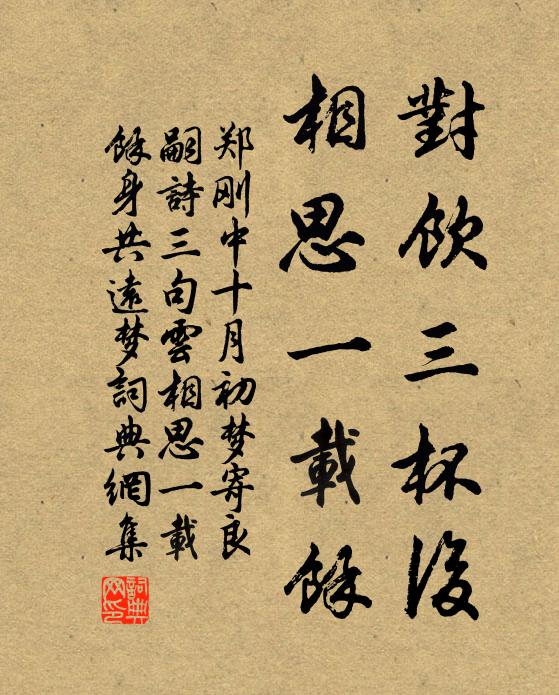 對飲三杯後
相思一載餘
郑刚中十月初梦寄良
嗣詩三句雲相思一載
餘身共遠梦詞典網集
詞典网印